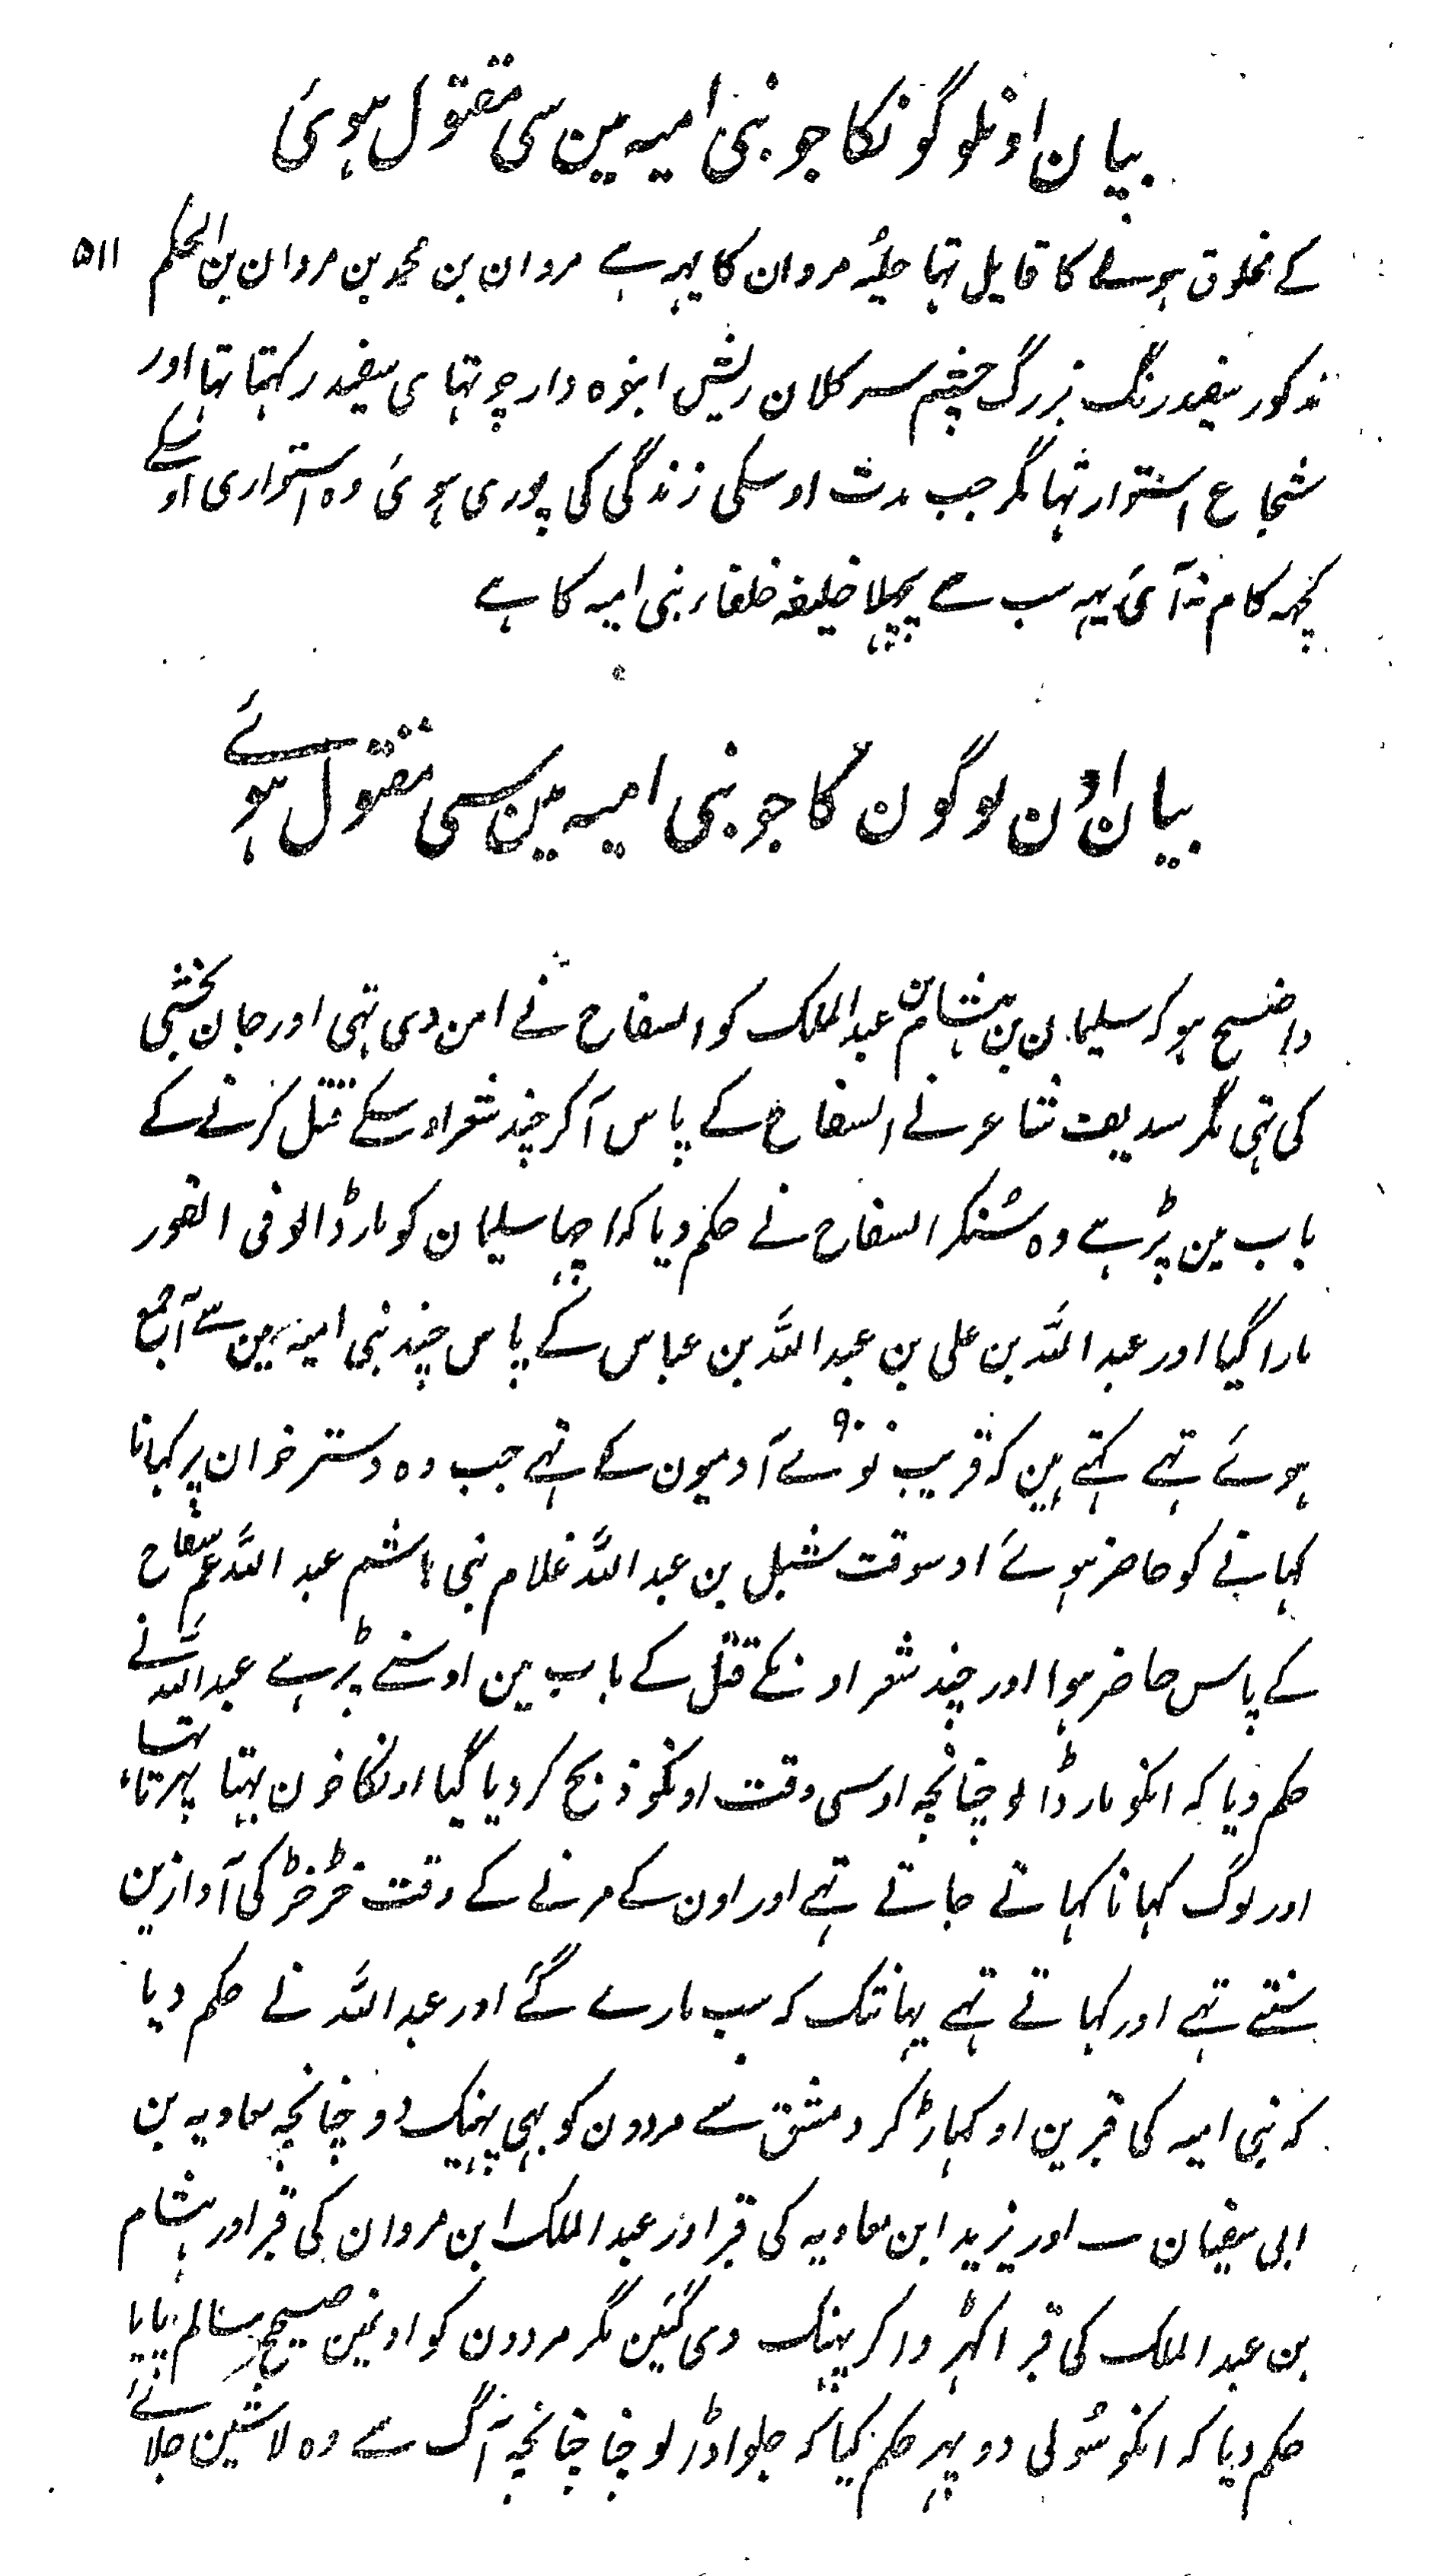 بیان اونلوگونکا جو بنی امیہ مین سی مقتول ہوئی
۵۱۱
کے مخلوق ہونے کا قایل تہا حلیُہ مروان کا یہہ ہے مروان بن محمد بن مروان بن الحکم
مذکور سفید رنگ بزرگ چشم سر کلان ریش انبوہ دار چوتہای سفید رکہتا تہا اور
شجاع استوار تہا مگر جب مدت اوسکی زندگی کی پوری ہوئی وہ استواری اوسکے
کچہہ کام نہ آئی یہہ سب سے پچہلا خلیفہ خلفاء بنی امیہ کا ہے
بیان اوُن لوگون کا جو بنی امیہ مین سی مقتول ہوئے
واضح ہو کہ سلیمان بن ہشام بن عبد الملک کو السفاح نے امن دی تہی اور جان بخشی
کی تہی مگر سدیف شاعر نے السفاح کے پاس آکر چند شعر اوسکے قتل کرنے کے
باب مین پڑہے وہ سُنکر السفاح نے حکم دیا کہ اچہا سلیمان کو مار ڈالو فی الفور
مارا گیا اور عبد اللہ بن علی بن عبد اللہ بن عباس کے پاس چند بنی امیہ مین سے آ جمع
ہوئے تہے کہتے ہین کہ قریب نوّے ۹۰ آدمیون کے تہے جب وہ دستر خوان پر کہانا
کہانے کو حاضر ہوئے اوسوقت شبل بن عبد اللہ غلام بنی ہاشم عبد اللہ عم سفاح
کے پاس حاضر ہوا اور چند شعر اونکے قتل کے باب مین اوسنے پڑہے عبد اللہ نے
حکم دیا کہ انکو مار ڈالو چنانچہ اوسی وقت اونکو ذبح کر دیا گیا اونکا خون بہتا پہرتا تہا
اور لوگ کہانا کہاتے جاتے تہے اور اون کے مرنے کے وقت خڑخڑ کی آوازین
سنتے تہے اور کہاتے تہے یہانتک کہ سب مارے گے اور عبد اللہ نے حکم دیا
کہ بنی امیہ کی قبرین اوکہاڑ کر دمشق سے مردون کو بہی پہینک دو چنانچہ معاویہ بن
ابی سفیان اور یزید ابن معاویہ کی قبر اور عبد الملک ابن مروان کی قبر اور ہشام
بن عبد الملک کی قبر اکہڑوا کر پہینک دی گئین مگر مردون کو اونمین صحیح سالم پایا
حکم دیا کہ انکو سُولی دو پہر حکم کیا کہ جلوا ڈالو چنانچہ آگ سے وہ لاشین جلائے